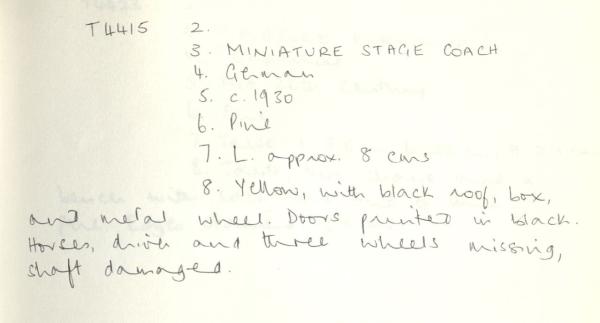 T4415 2.
3. MINIATURE STAGE COACH
4. German
5. c. 1930
6. Pine
7. L. approx. 8 cms
8. Yellow, with black roof, box,
and metal wheel. Doors printed in black.
Horses, driver and three wheels missing,
shaft damaged.